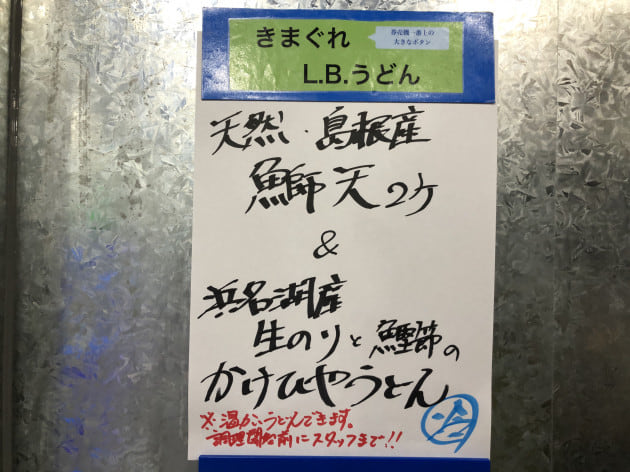 きまぐれ
券売機一番上の
大きなボタン
L.B.うどん
天然・島根産
鰤天2ケ
&
浜名湖産
生のりと鰹節の
かけひやうどん
※温かいうどんできます。
調理開始前にスタッフまで!!
冷